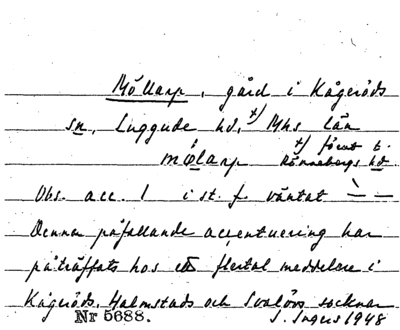 Möllarp, gård i Kågeröds
sn, Luggude hd, x/ Mhs län
x/ förut t.
mölarp Rönnebergs hd.
Obs. acc. 1 i st. f. väntat
Denna påfallande accentuering har
påträffats hos ett flertal meddelare i
Kågeröds, Halmstads och Svalövs socknar
Nr 5688. S. Ingers 1948